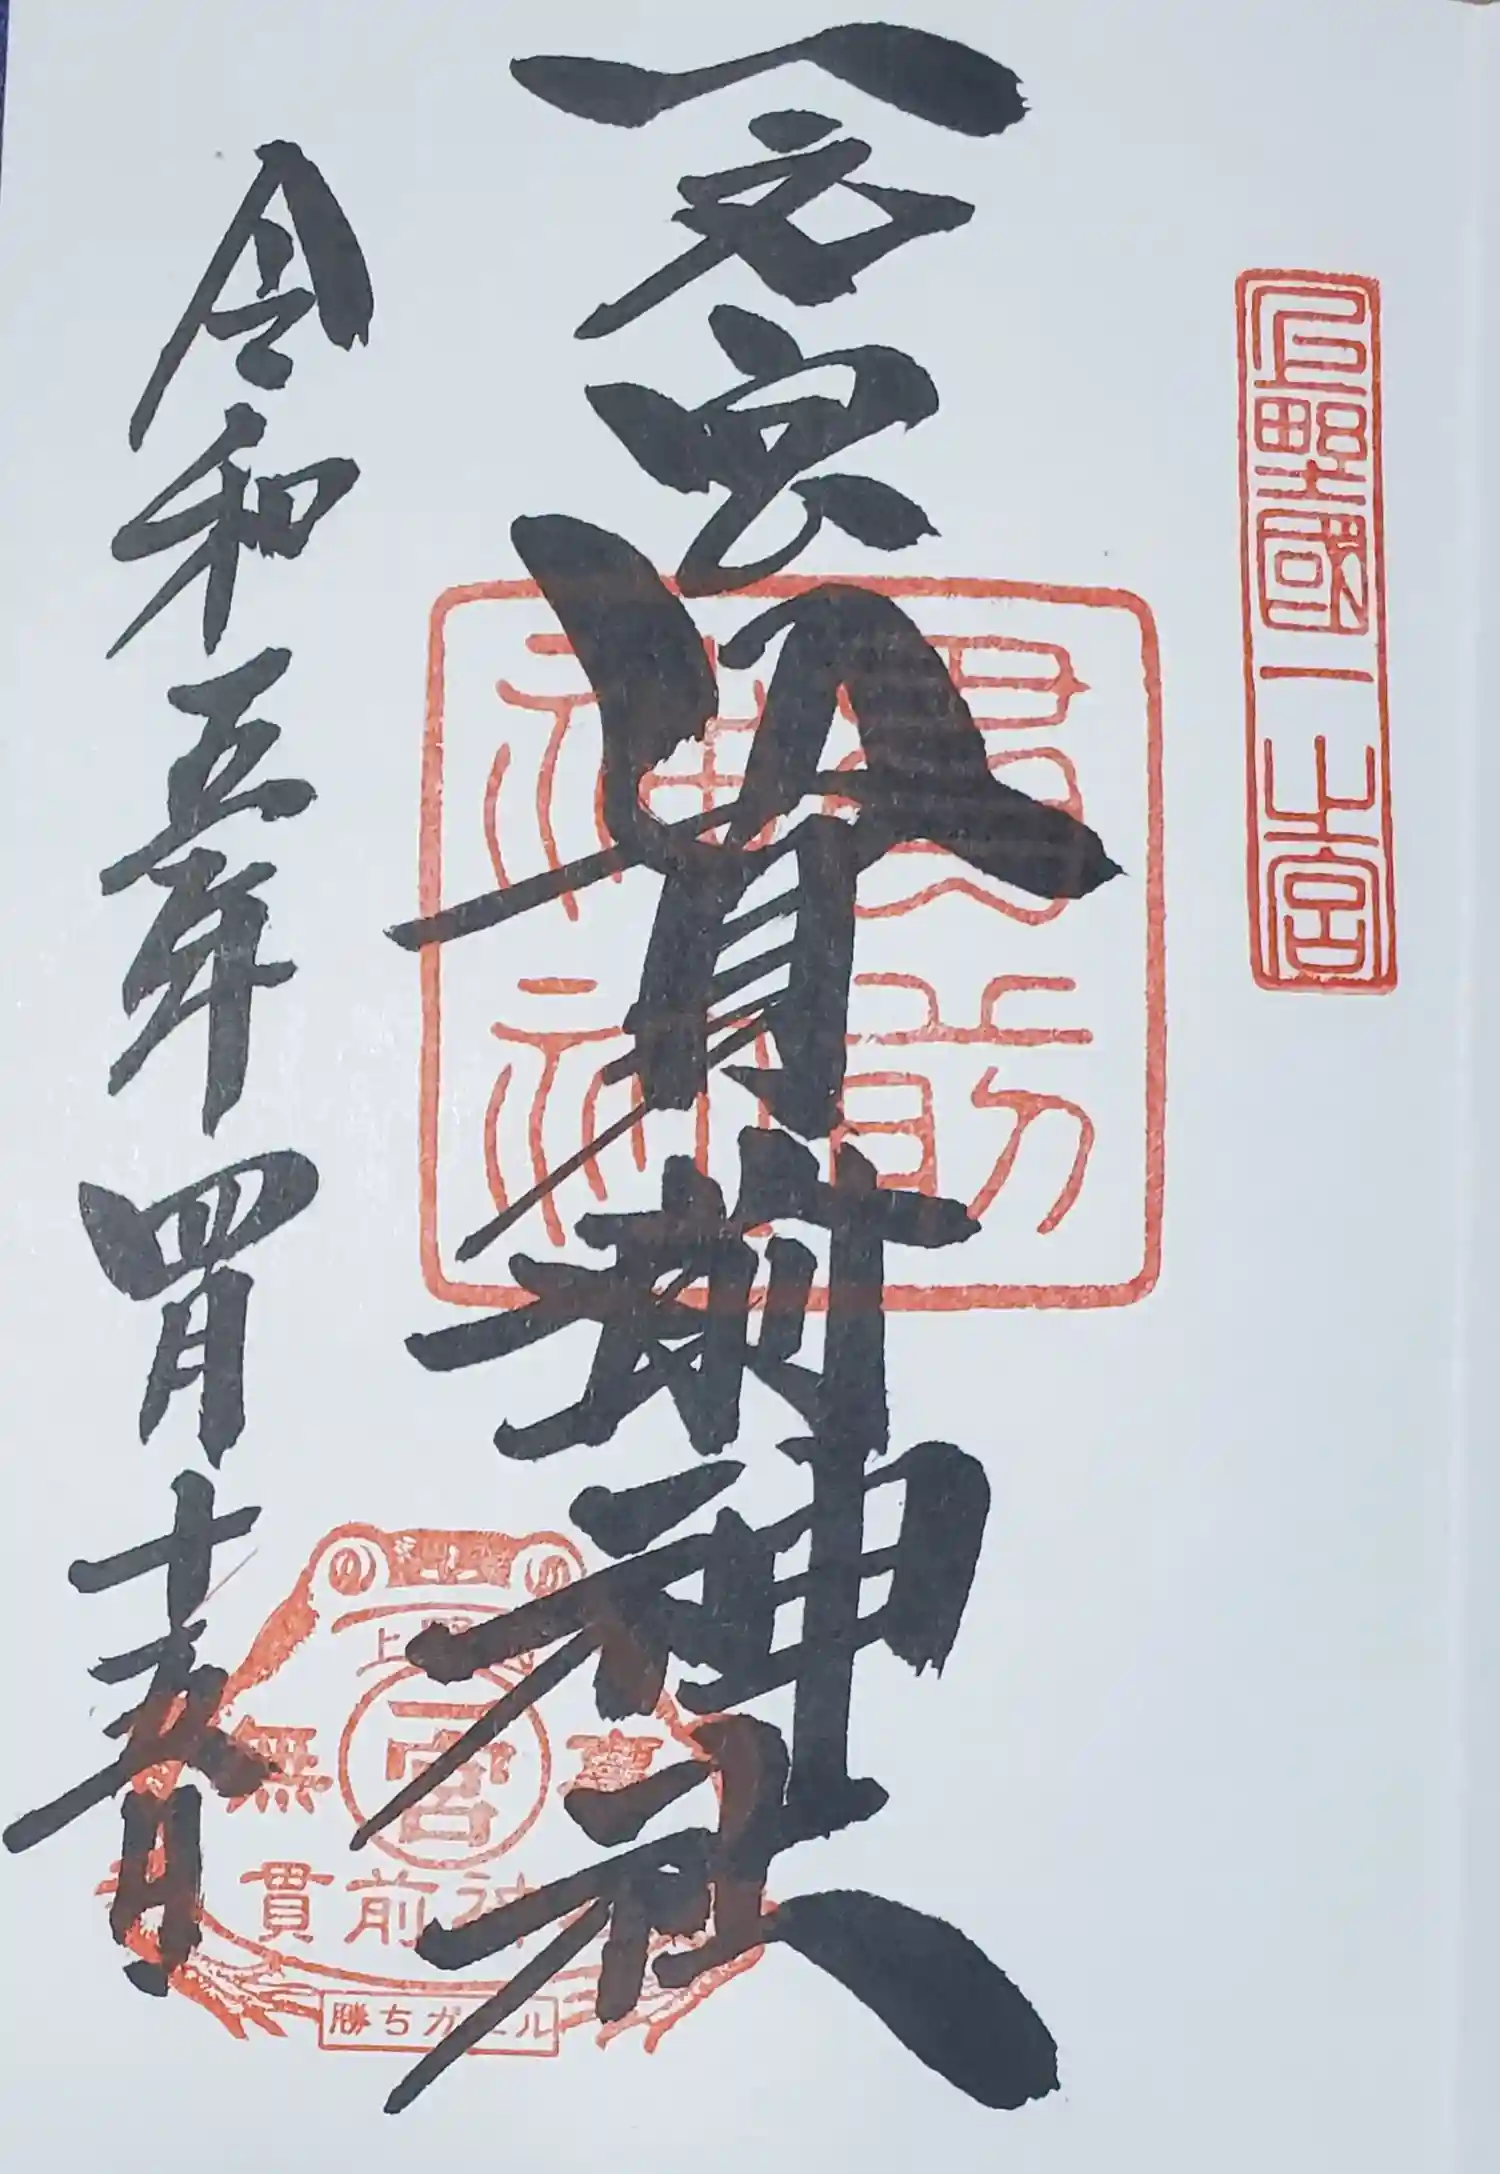 上野國一之宮
一之宮貫前神社
貫前神社
令和五年四月十五日
上野國
一宮
無事
貫前神社
勝ちガエル